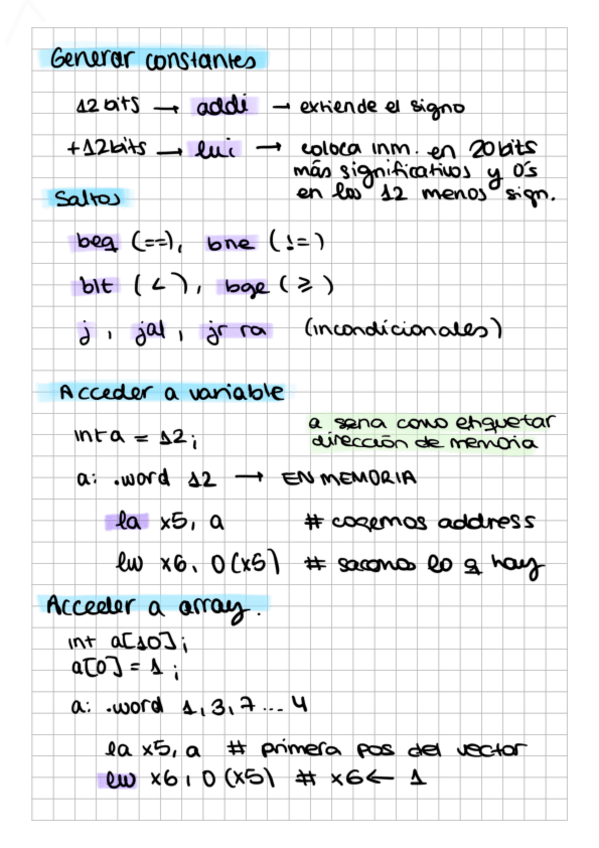 Generar constantes
12 bits → addi → extiende el signo
+12bits → lui → coloca inm. en 20 bits
más significativos y 0's
en los 12 menos sign.
Saltos
beq (==), bne (!=)
blt (<), bge (≥)
j, jal, jr ra (incondicionales)
Acceder a variable
int a = 12;
a seria como etiquetar
dirección de memoria
a: .word 12 → EN MEMORIA
la x5, a # cogemos address
lw x6, 0(x5) # sacamos lo q hay
Acceder a array.
int a[10];
a[0] = 1;
a: .word 1,3,7...4
la x5, a # primera pos del vector
lw x6, 0(x5) # x6← 1